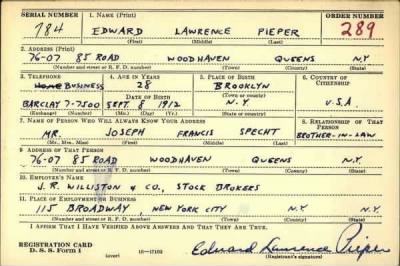 SERIAL NUMBER 1. NAME (Print) ORDER NUMBER
784 EDWARD LAWRENCE PIEPER 289
(First) (Middle) (Last)
2. ADDRESS (Print)
76-07 85 ROAD WOODHAVEN QUEENS N.Y.
(Number and street or R. F. D. number) (Town) (County) (State)
3. TELEPHONE 4. AGE IN YEARS 5. PLACE OF BIRTH 6. COUNTRY OF CITIZENSHIP
Home BUSINESS 28 BROOKLYN
DATE OF BIRTH (Town or county)
BARCLAY 7-7500 SEPT. 8 1912 N.Y. U.S.A
(Exchange) (Number) (Mo.) (Day) (Yr.) (State or country)
7. NAME OF PERSON WHO WILL ALWAYS KNOW YOUR ADDRESS 8. RELATIONSHIP OF THAT PERSON
MR. JOSEPH FRANCIS SPECHT BROTHER-IN-LAW
(Mr., Mrs., Miss) (First) (Middle) (Last)
9. ADDRESS OF THAT PERSON
76-07 85 ROAD WOODHAVEN QUEENS N.Y.
(Number and street or R. F. D. number) (Town) (County) (State)
10. EMPLOYER'S NAME
J. R. WILLISTON & CO., STOCK BROKERS
11. PLACE OF EMPLOYMENT OR BUSINESS
115 BROADWAY, NEW YORK CITY N.Y. N.Y.
(Number and street or R. F. D. number) (Town) (County) (State)
I AFFIRM THAT I HAVE VERIFIED ABOVE ANSWERS AND THAT THEY ARE TRUE.
REGISTRATION CARD
D. S. S. Form 1 (over) 16-17105 Edward Lawrence Pieper
(Registrant's signature)